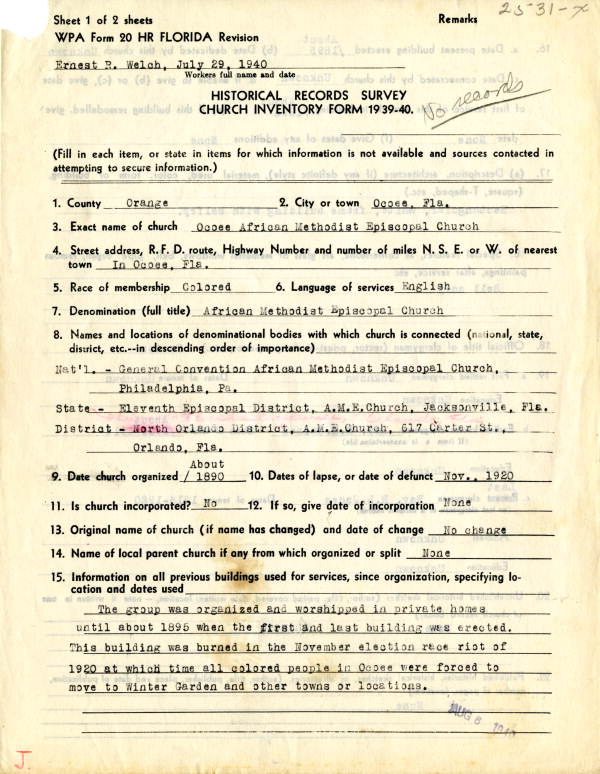 25-31-X
Sheet 1 of 2 sheets Remarks
WPA Form 20 HR FLORIDA Revision
Ernest R. Welch, July 29, 1940
Workers full name and date
HISTORICAL RECORDS SURVEY
CHURCH INVENTORY FORM 1939-40.
No records
(Fill in each item, or state in items for which information is not available and sources contacted in
attempting to secure information.)
1. County Orange 2. City or town Ocoee, Fla.
3. Exact name of church Ocoee African Methodist Episcopal Church
4. Street address, R.F.D. route, Highway Number and number of miles N. S. E. or W. of nearest
town In Ocoee, Fla.
5. Race of membership Colored 6. Language of services English
7. Denomination (full title) African Methodist Episcopal Church
8. Names and locations of denominational bodies with which church is connected (national, state,
district, etc.--in descending order of importance)
Nat'l. - General Convention African Methodist Episcopal Church,
Philadelphia, Pa.
State- Eleventh Episcopal District, A.M.E.Church, Jacksonville, Fla.
District - North Orlando District, A.M.E.Church, 617 Carter St.,
Orlando, Fla.
About
9. Date church organized / 1890 10. Dates of lapse, or date of defunct Nov., 1920
11. Is church incorporated? No 12. If so, give date of incorporation None
13. Original name of church (if name has changed) and date of change No change
14. Name of local parent church if any from which organized or split None
15. Information on all previous buildings used for services, since organization, specifying lo-
cation and dates used
The group was organized and worshipped in private homes
until about 1895 when the first and last building was erected.
This building was burned in the November election race riot of
1920 at which time all colored people in Ocoee were forced to
move to Winter Garden and other towns or locations.
AUG 8 1940
J.